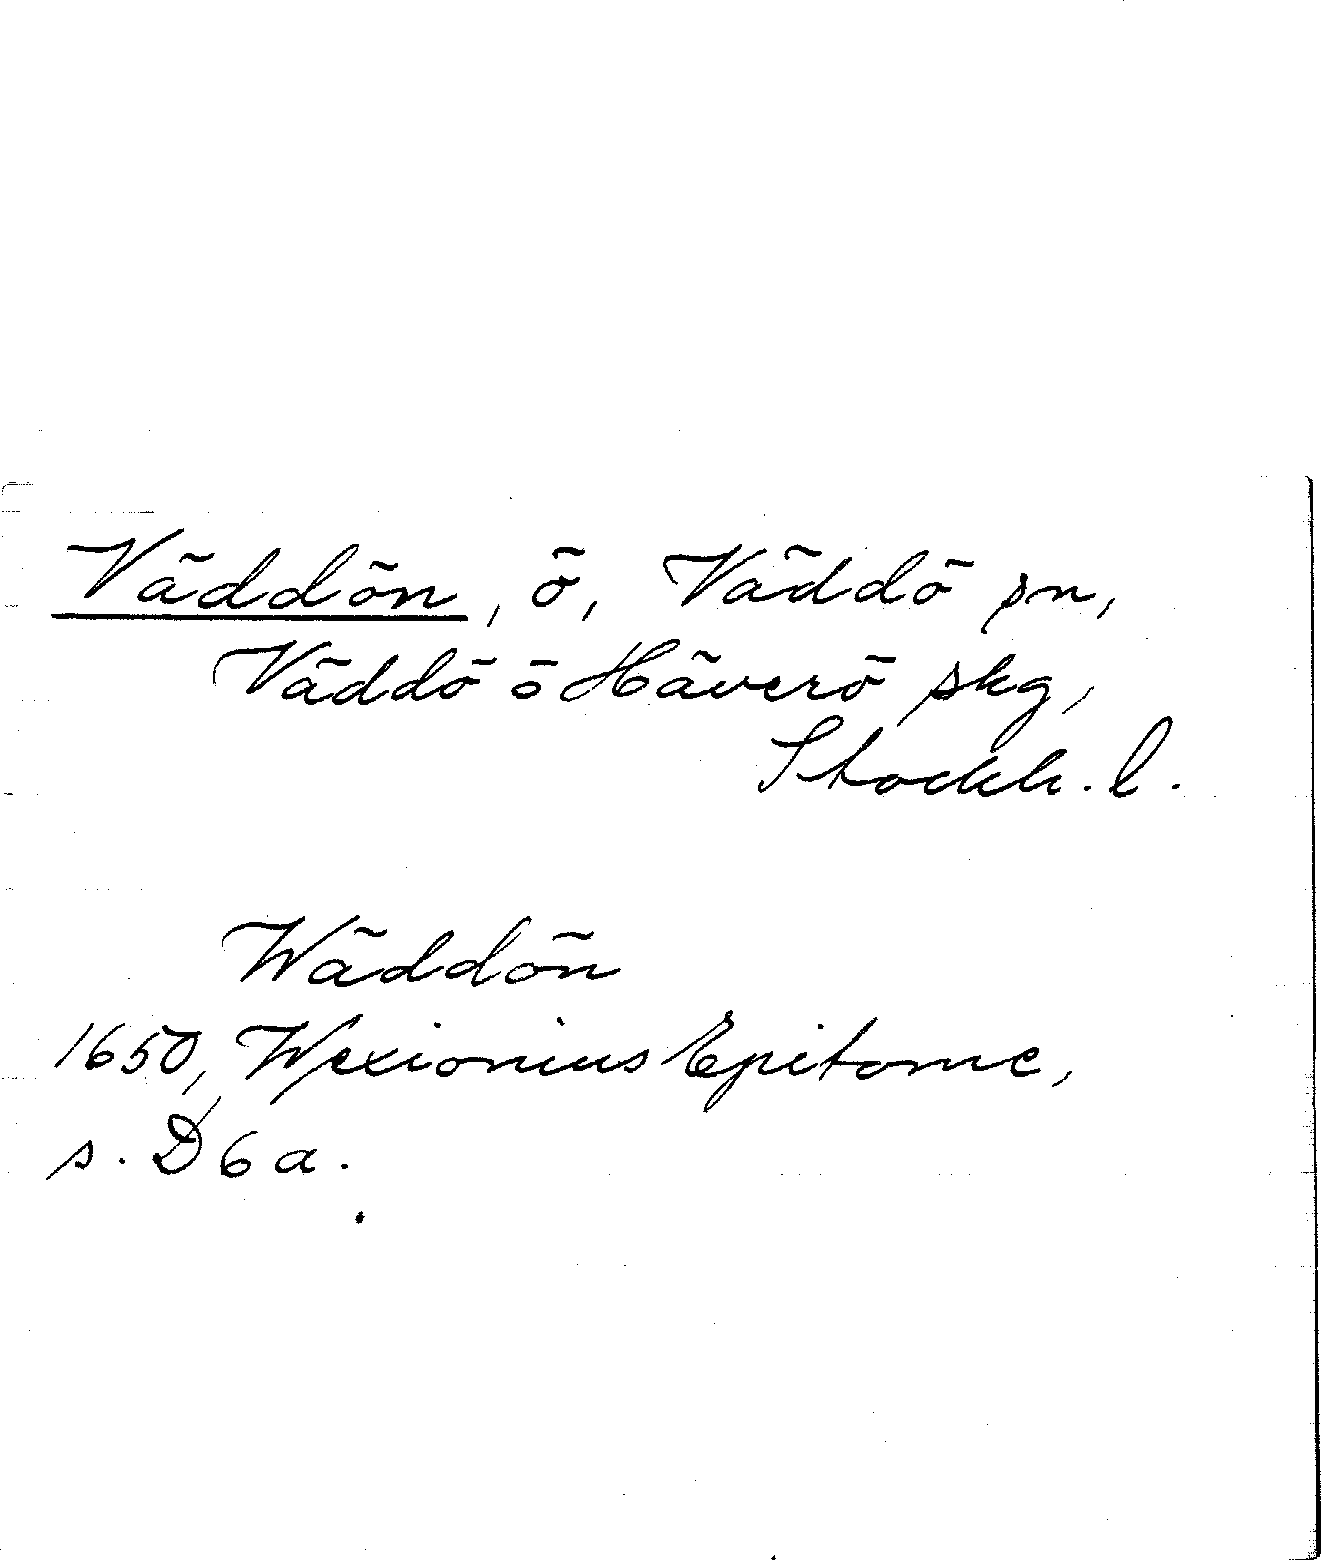 Väddön, ö, Väddö sn,
Väddö o Häverö skg,
Stockh. l.
Wäddön
1650, Wexionius Epitome,
s. D6a.